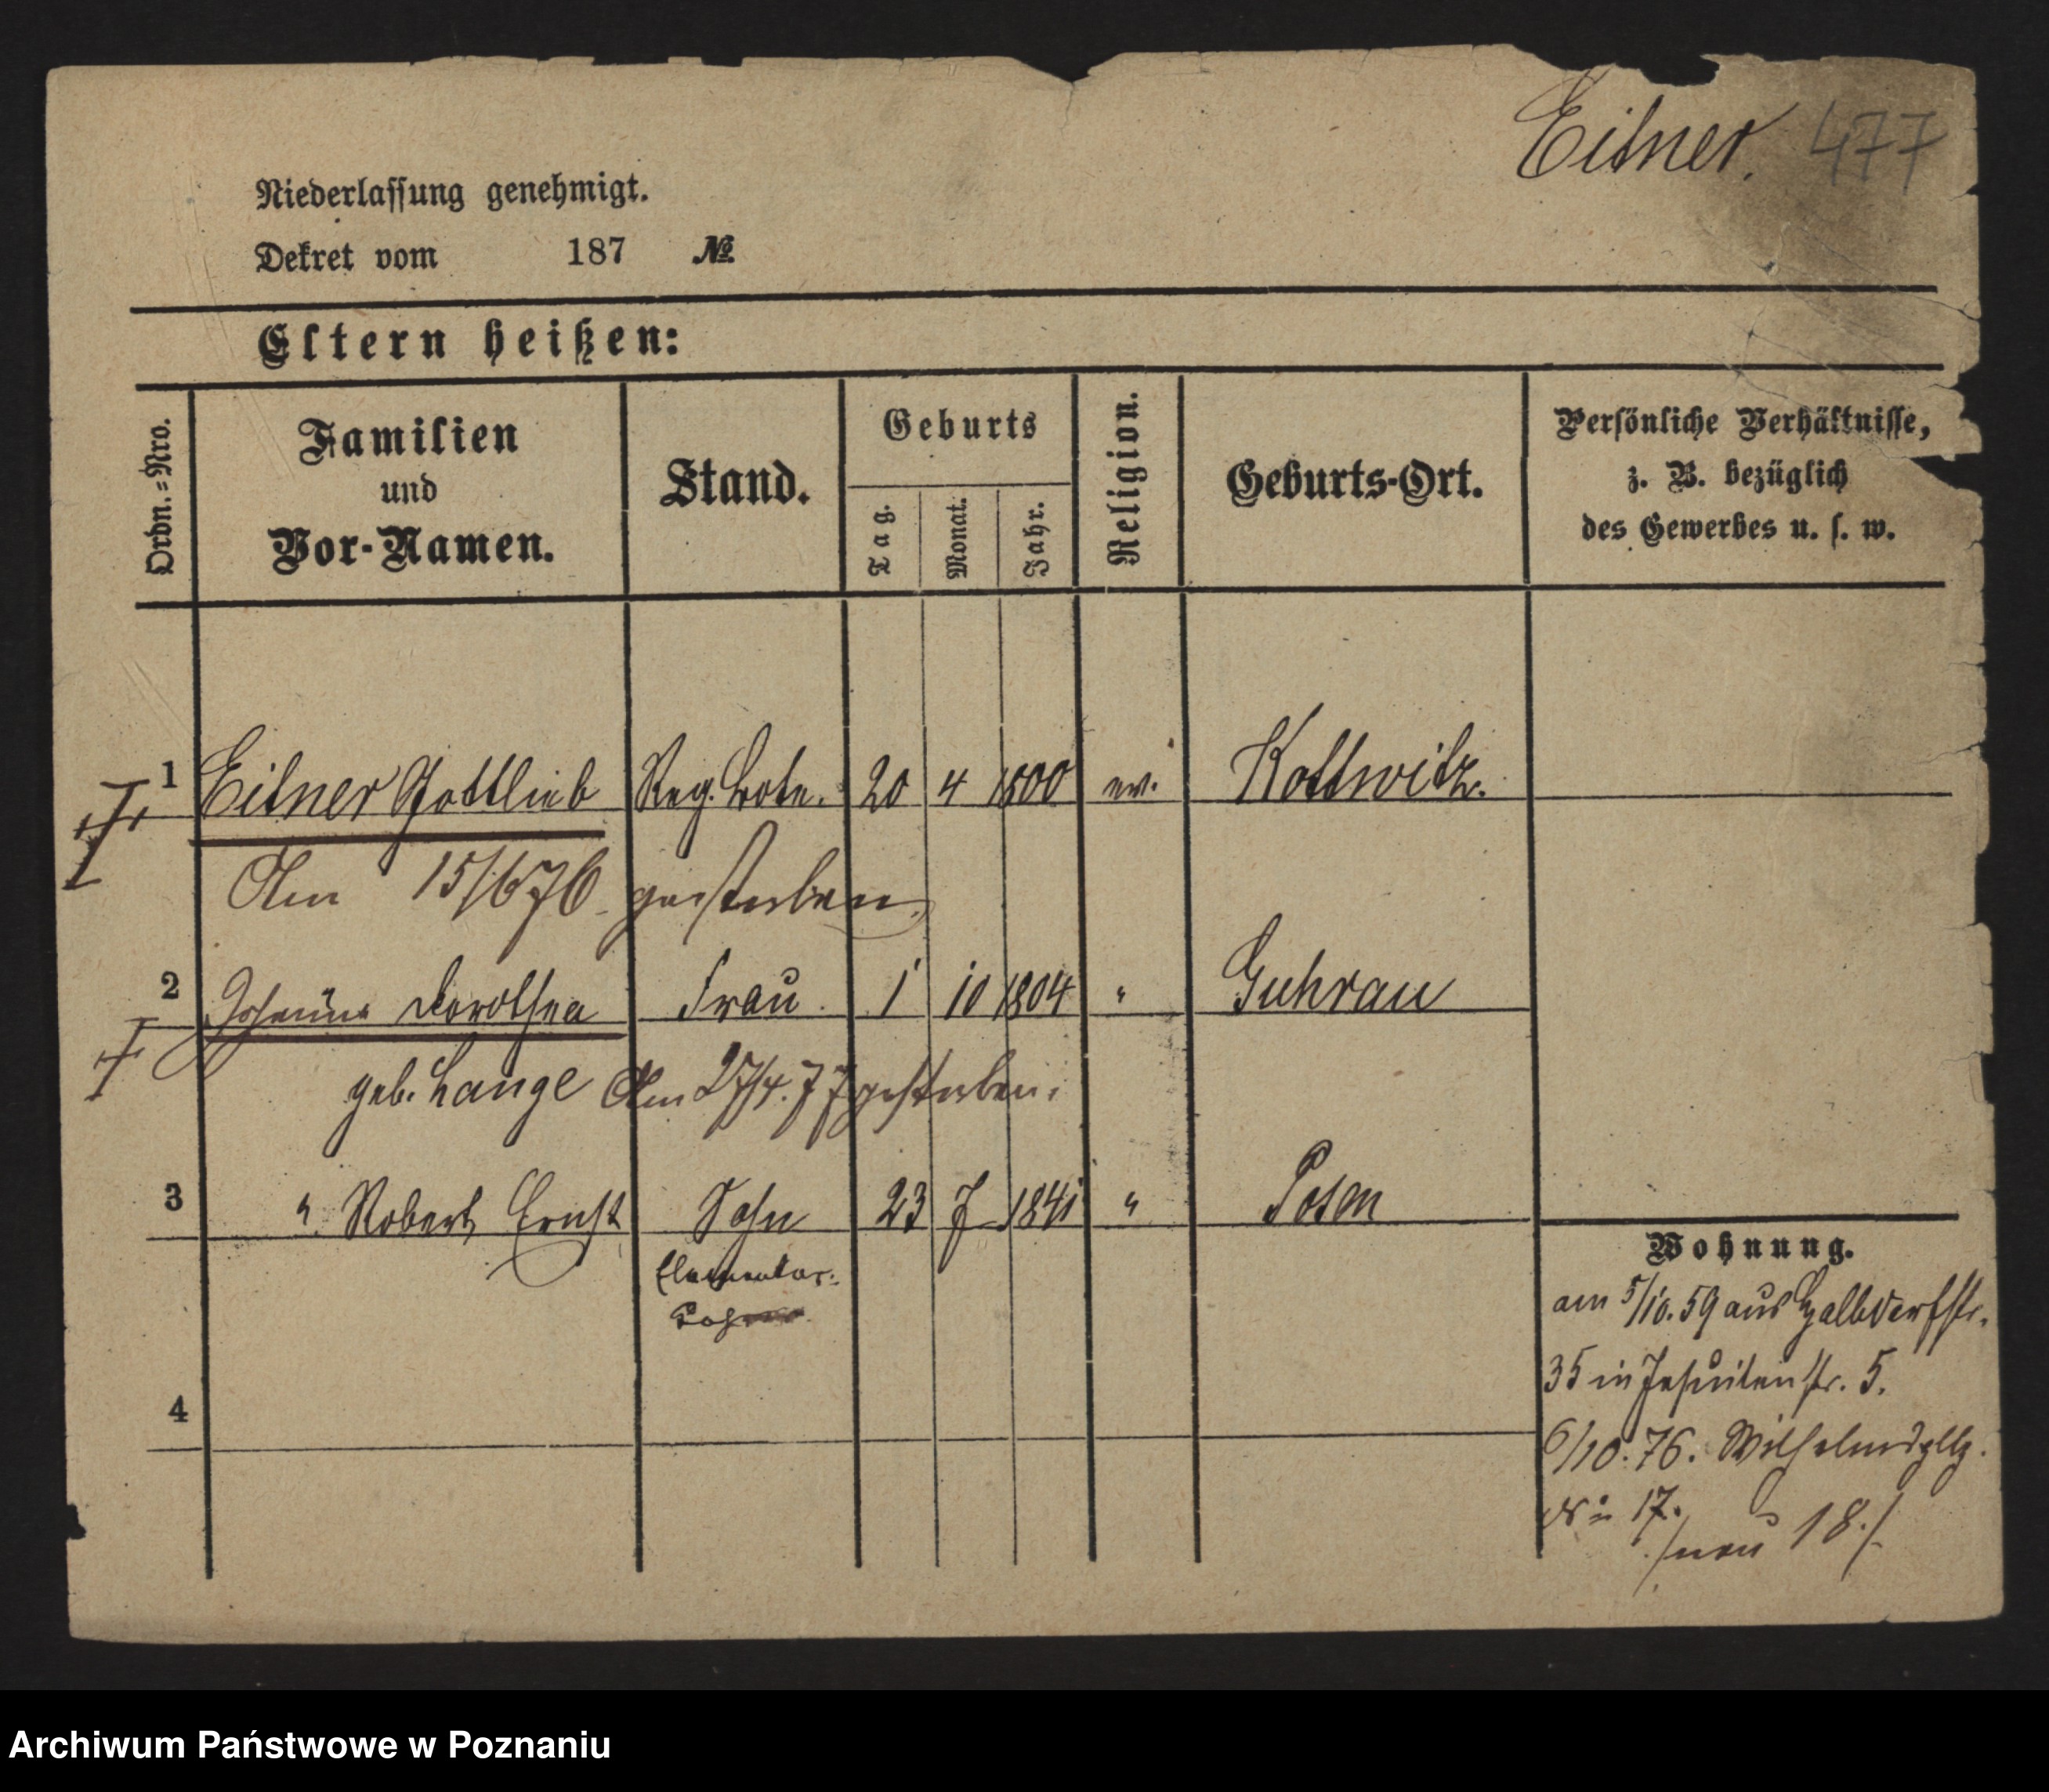 Eitner. 477
Niederlassung genehmigt.
Dekret vom 187 №
Eltern heißen:
Ordn.=Nro. Familien und Vor-Namen. Stand. Geburts Tag. Monat. Jahr. Religion. Geburts-Ort. Persönliche Verhältnisse, z. B. bezüglich des Gewerbes u. s. w.
1 Eitner Gottlieb Reg. Bote. 20 4 1800 ev. Kottwitz.
Am 15/6 76 gestorben.
2 Dorothea Frau 1 10 1804 " Guhrau
geb. Lange Am 27/4. 77 gestorben.
3 " Robert Ernst Sohn 23 7 1841 " Posen
Elementar=
Wohnung.
am 5/10. 59 aus Halbdorfstr.
35 in Jesuitenstr. 5.
6/10. 76. Wilhelmspltz.
No 17.
./neu 18./.
4
Archiwum Państwowe w Poznaniu